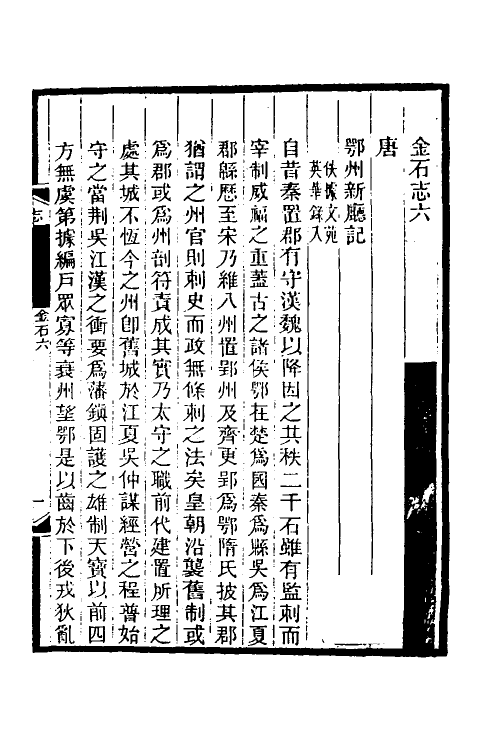 金石志六
唐
鄂州新廳記
佚據文苑
英華錄入
自昔秦置郡有守漢魏以降因之其秩二千石雖有監刺而
宰制威福之重蓋古之諸侯鄂在楚為國秦為縣吳為江夏
郡緜歷至宋乃維八州置郢州及齊更郢為鄂隋氏披其郡
猶謂之州官則刺史而政無條刺之法矣皇朝沿襲舊制或
為郡或為州剖符責成其實乃太守之職前代建置所理之
處其城不恆今之州卽舊城於江夏吳仲謀經營之程普始
守之當荆吳江漢之衝要為藩鎮固護之雄制天寶以前四
方無虞第據編戶眾寡等衰州望鄂是以齒於下後戎狄亂
志
金石六
一